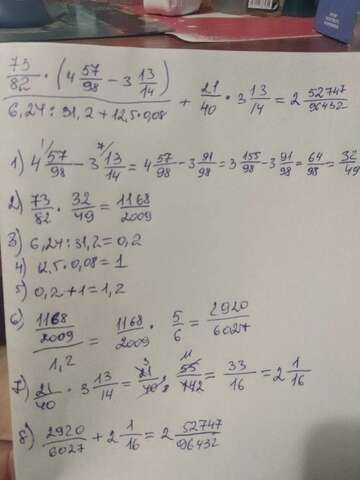 73/82 · (4 57/98 - 3 13/14) / 6,24 : 31,2 + 12,5·0,08 + 21/40 · 3 13/14 = 2 52747/96432
1) 4 57/98 - 3 13/14 = 4 57/98 - 3 91/98 = 3 155/98 - 3 91/98 = 64/98 = 32/49
2) 73/82 · 32/49 = 1168/2009
3) 6,24 : 31,2 = 0,2
4) 12,5·0,08 = 1
5) 0,2 + 1 = 1,2
6) 1168/2009 / 1,2 = 1168/2009 · 5/6 = 2920/6027
7) 21/40 · 3 13/14 = 21/40 · 55/142 = 33/16 = 2 1/16
8) 2920/6027 + 2 1/16 = 2 52747/96432